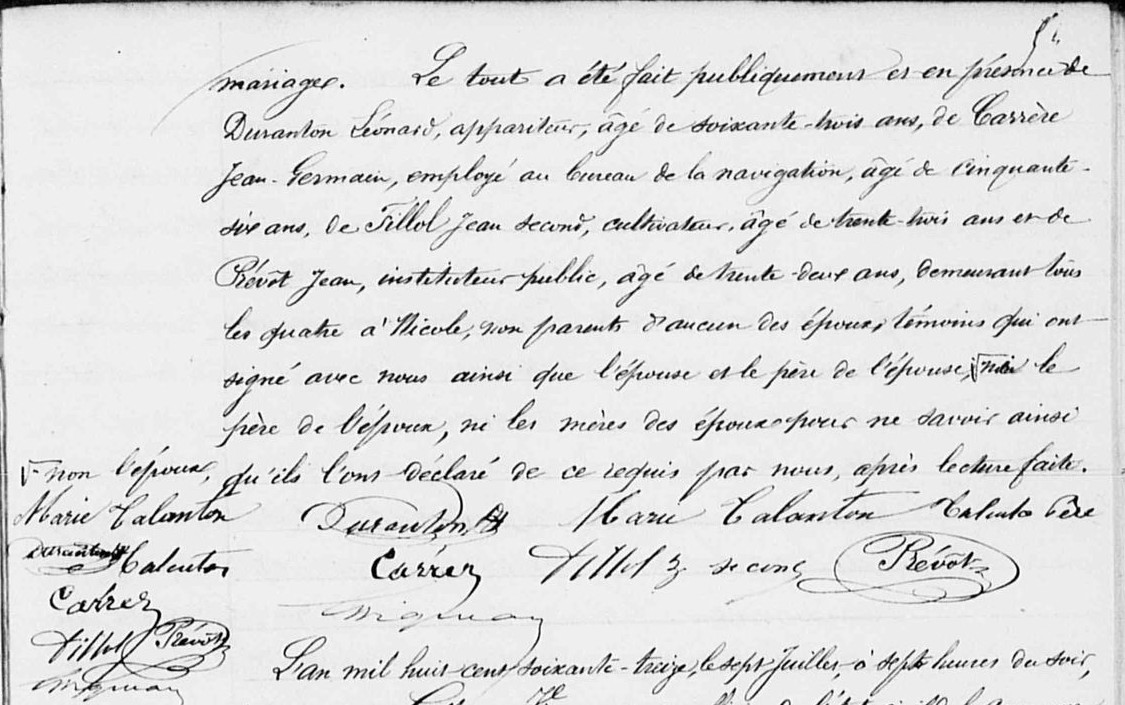 mariages. Le tout a été fait publiquement et en présence de
Duranton Léonard, appariteur, âgé de soixante-trois ans, de Carrère
Jean-Germain, employé au bureau de la navigation, âgé de cinquante-
six ans, de Tillol Jean second, cultivateur, âgé de trente-trois ans et de
Prévôt Jean, instituteur public, âgé de trente-deux ans, demeurant tous
les quatre à Nicole, non parents d'aucun des époux, témoins qui ont
signé avec nous ainsi que l'épouse et le père de l'épouse, le
père de l'époux, ni les mères des époux pour ne savoir ainsi
non l'époux,
qu'ils l'ont déclaré de ce requis par nous, après lecture faite.
Marie Talanton
Duranton Marie Talanton Père
Duranton
Carrer Tillol J second Prévôt
Carrer
Tillol Prévôt
L'an mil huit cent soixante-treize, le sept Juillet, à sept heures du soir,